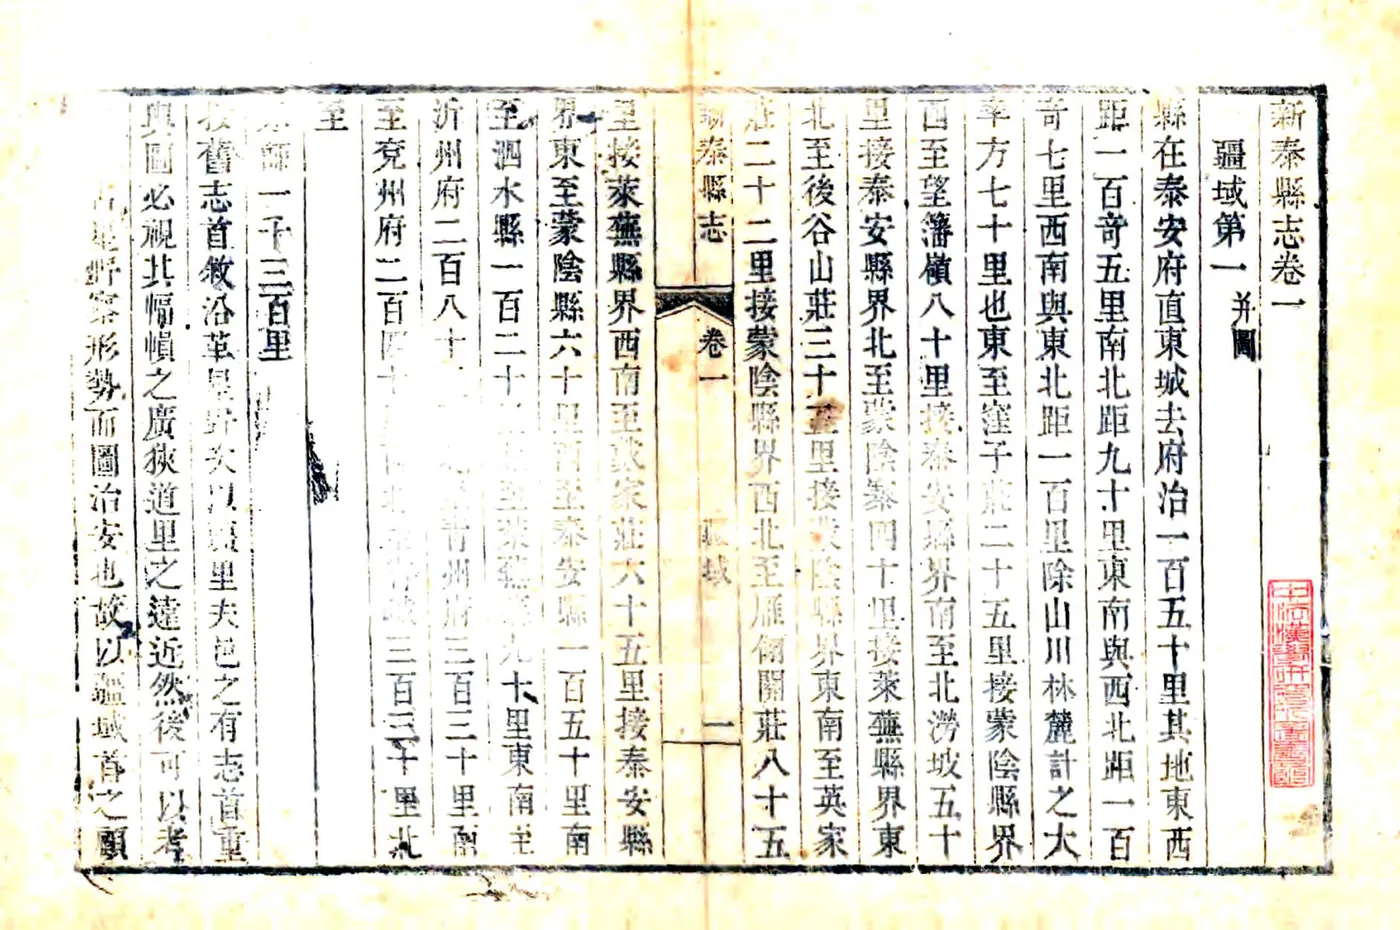 新泰縣志卷一
疆域第一 并圖
縣在泰安府直東城去府治一百五十里其地東西
距一百竒五里南北距九十里東南與西北距一百
竒七里西南與東北距一百里除山川林麓計之大
率方七十里也東至窪子莊二十五里接蒙陰縣界
西至望籓嶺八十里接泰安縣界南至北澇坡五十
里接泰安縣界北至蒙陰寨四十里接萊蕪縣界東
北至後谷山莊三十五里接蒙陰縣界東南至英家
莊二十二里接蒙陰縣界西北至雁翎關莊八十五
新泰縣志 卷一 疆域 一
里接萊蕪縣界西南至家莊六十五里接泰安縣
界東至蒙陰縣六十里西至泰安縣一百五十里南
至泗水縣一百二十至萊蕪縣九十里東南至
沂州府二百八十青州府三百三十里西
至兖州府二百四十三百三十里北
至
師一千三百里
按舊志首敘沿革星野次以疆里夫邑之有志首重
輿圖必視其幅幀之廣狹道里之遠近然後可以考
星野察形勢而圖治安也故以疆域首之願